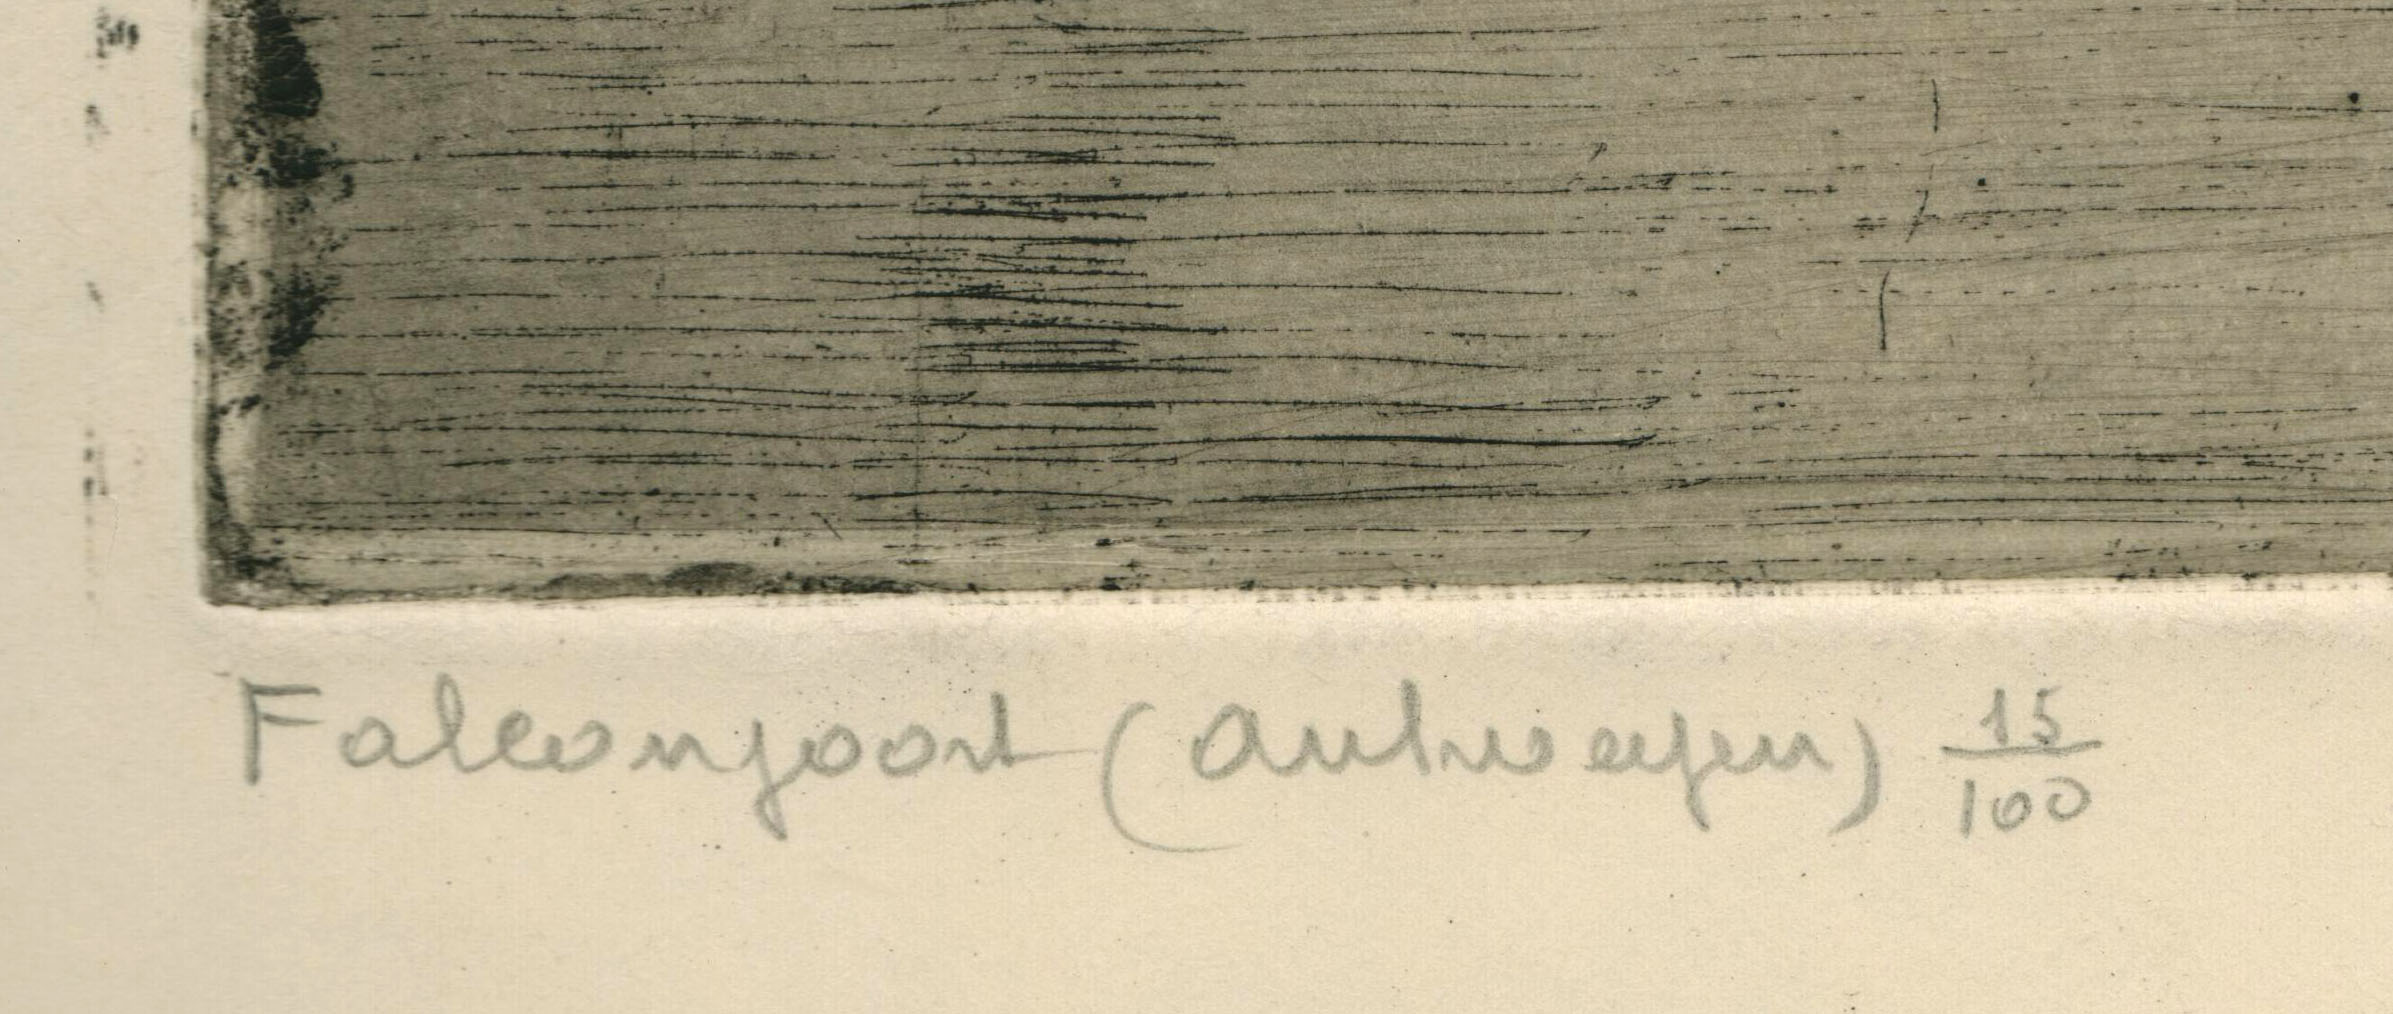 Falconpoort (Antwerpen) 15/100